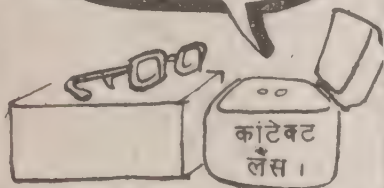 कांटेक्ट
लैंस ।